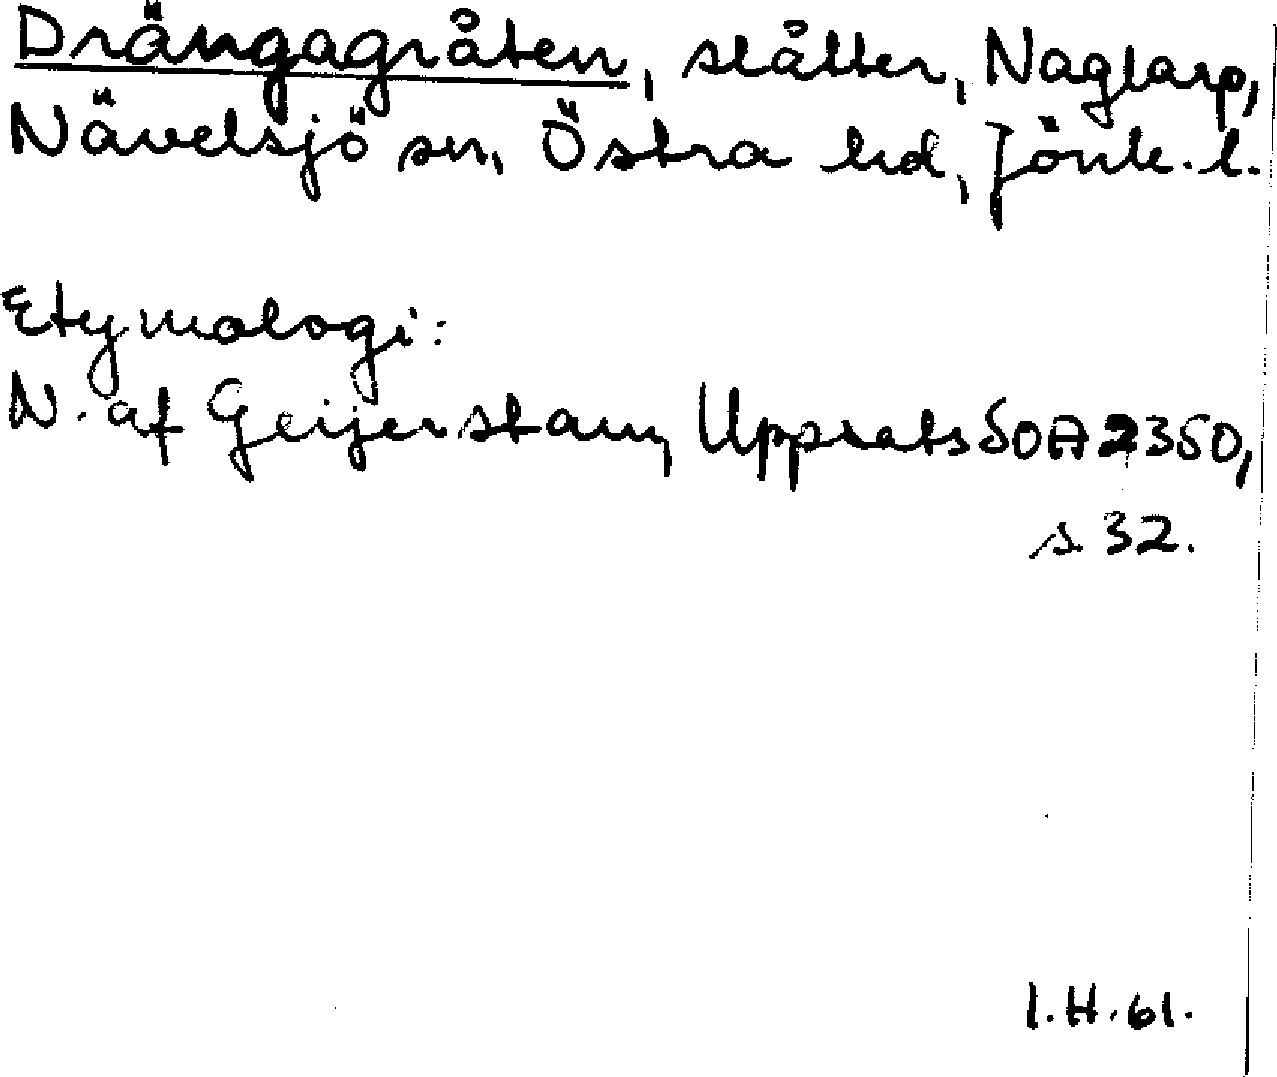 Drängagråten, slåtter, Naglarp,
Nävelsjö sn, Östra hd, Jönk. l.
Etymologi:
N. af Geijerstam, Uppsats SOA 2350,
s 32.
I.H. 61.